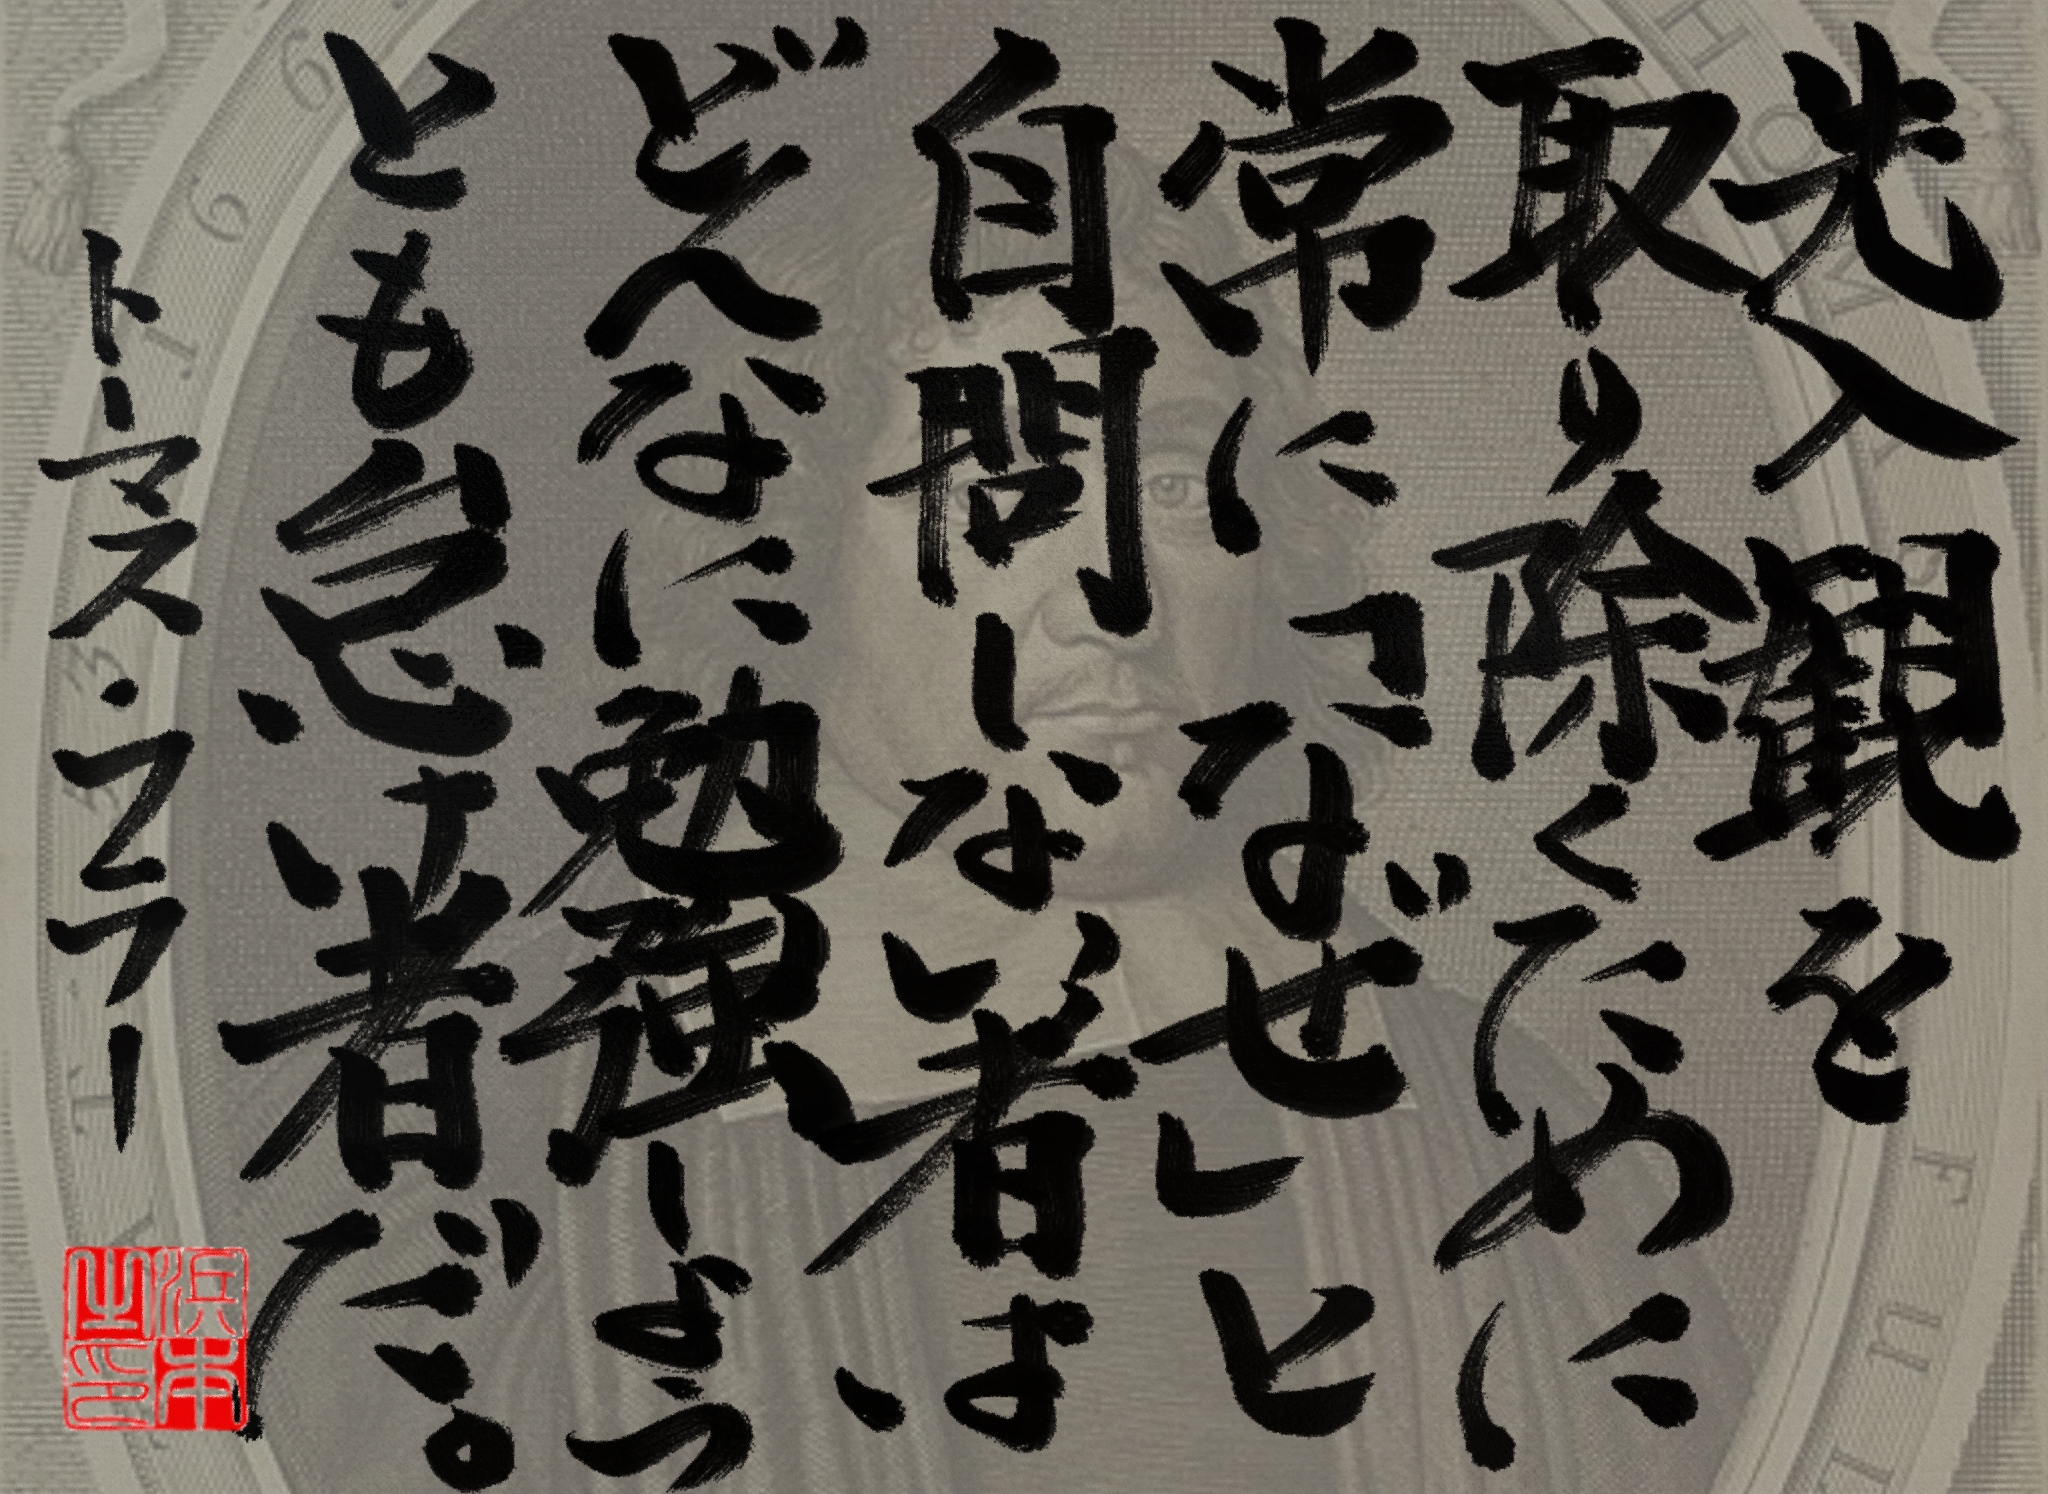 先入観を
取り除くために
常に「なぜ」と
自問しない者は、
どんなに勉強しよう
とも怠け者だ。
トーマス・フラー
浜本之印